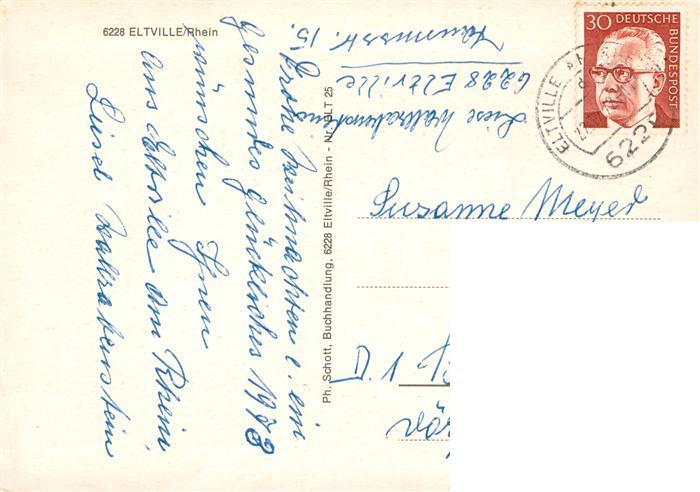 6228 ELTVILLE/Rhein
Frohe Weihnachten u. ein
gesundes glückliches 1973
wünschen Ihnen
aus Eltville am Rhein,
Liesel Wallrabenstein
Liese Wallrabenstein
6228 Eltville
Taunusstr. 15.
Ph. Schott, Buchhandlung, 6228 Eltville/Rhein - Nr. GLT 25
30 DEUTSCHE
BUNDESPOST
ELTVILLE
622
Susanne Meyer
D.1